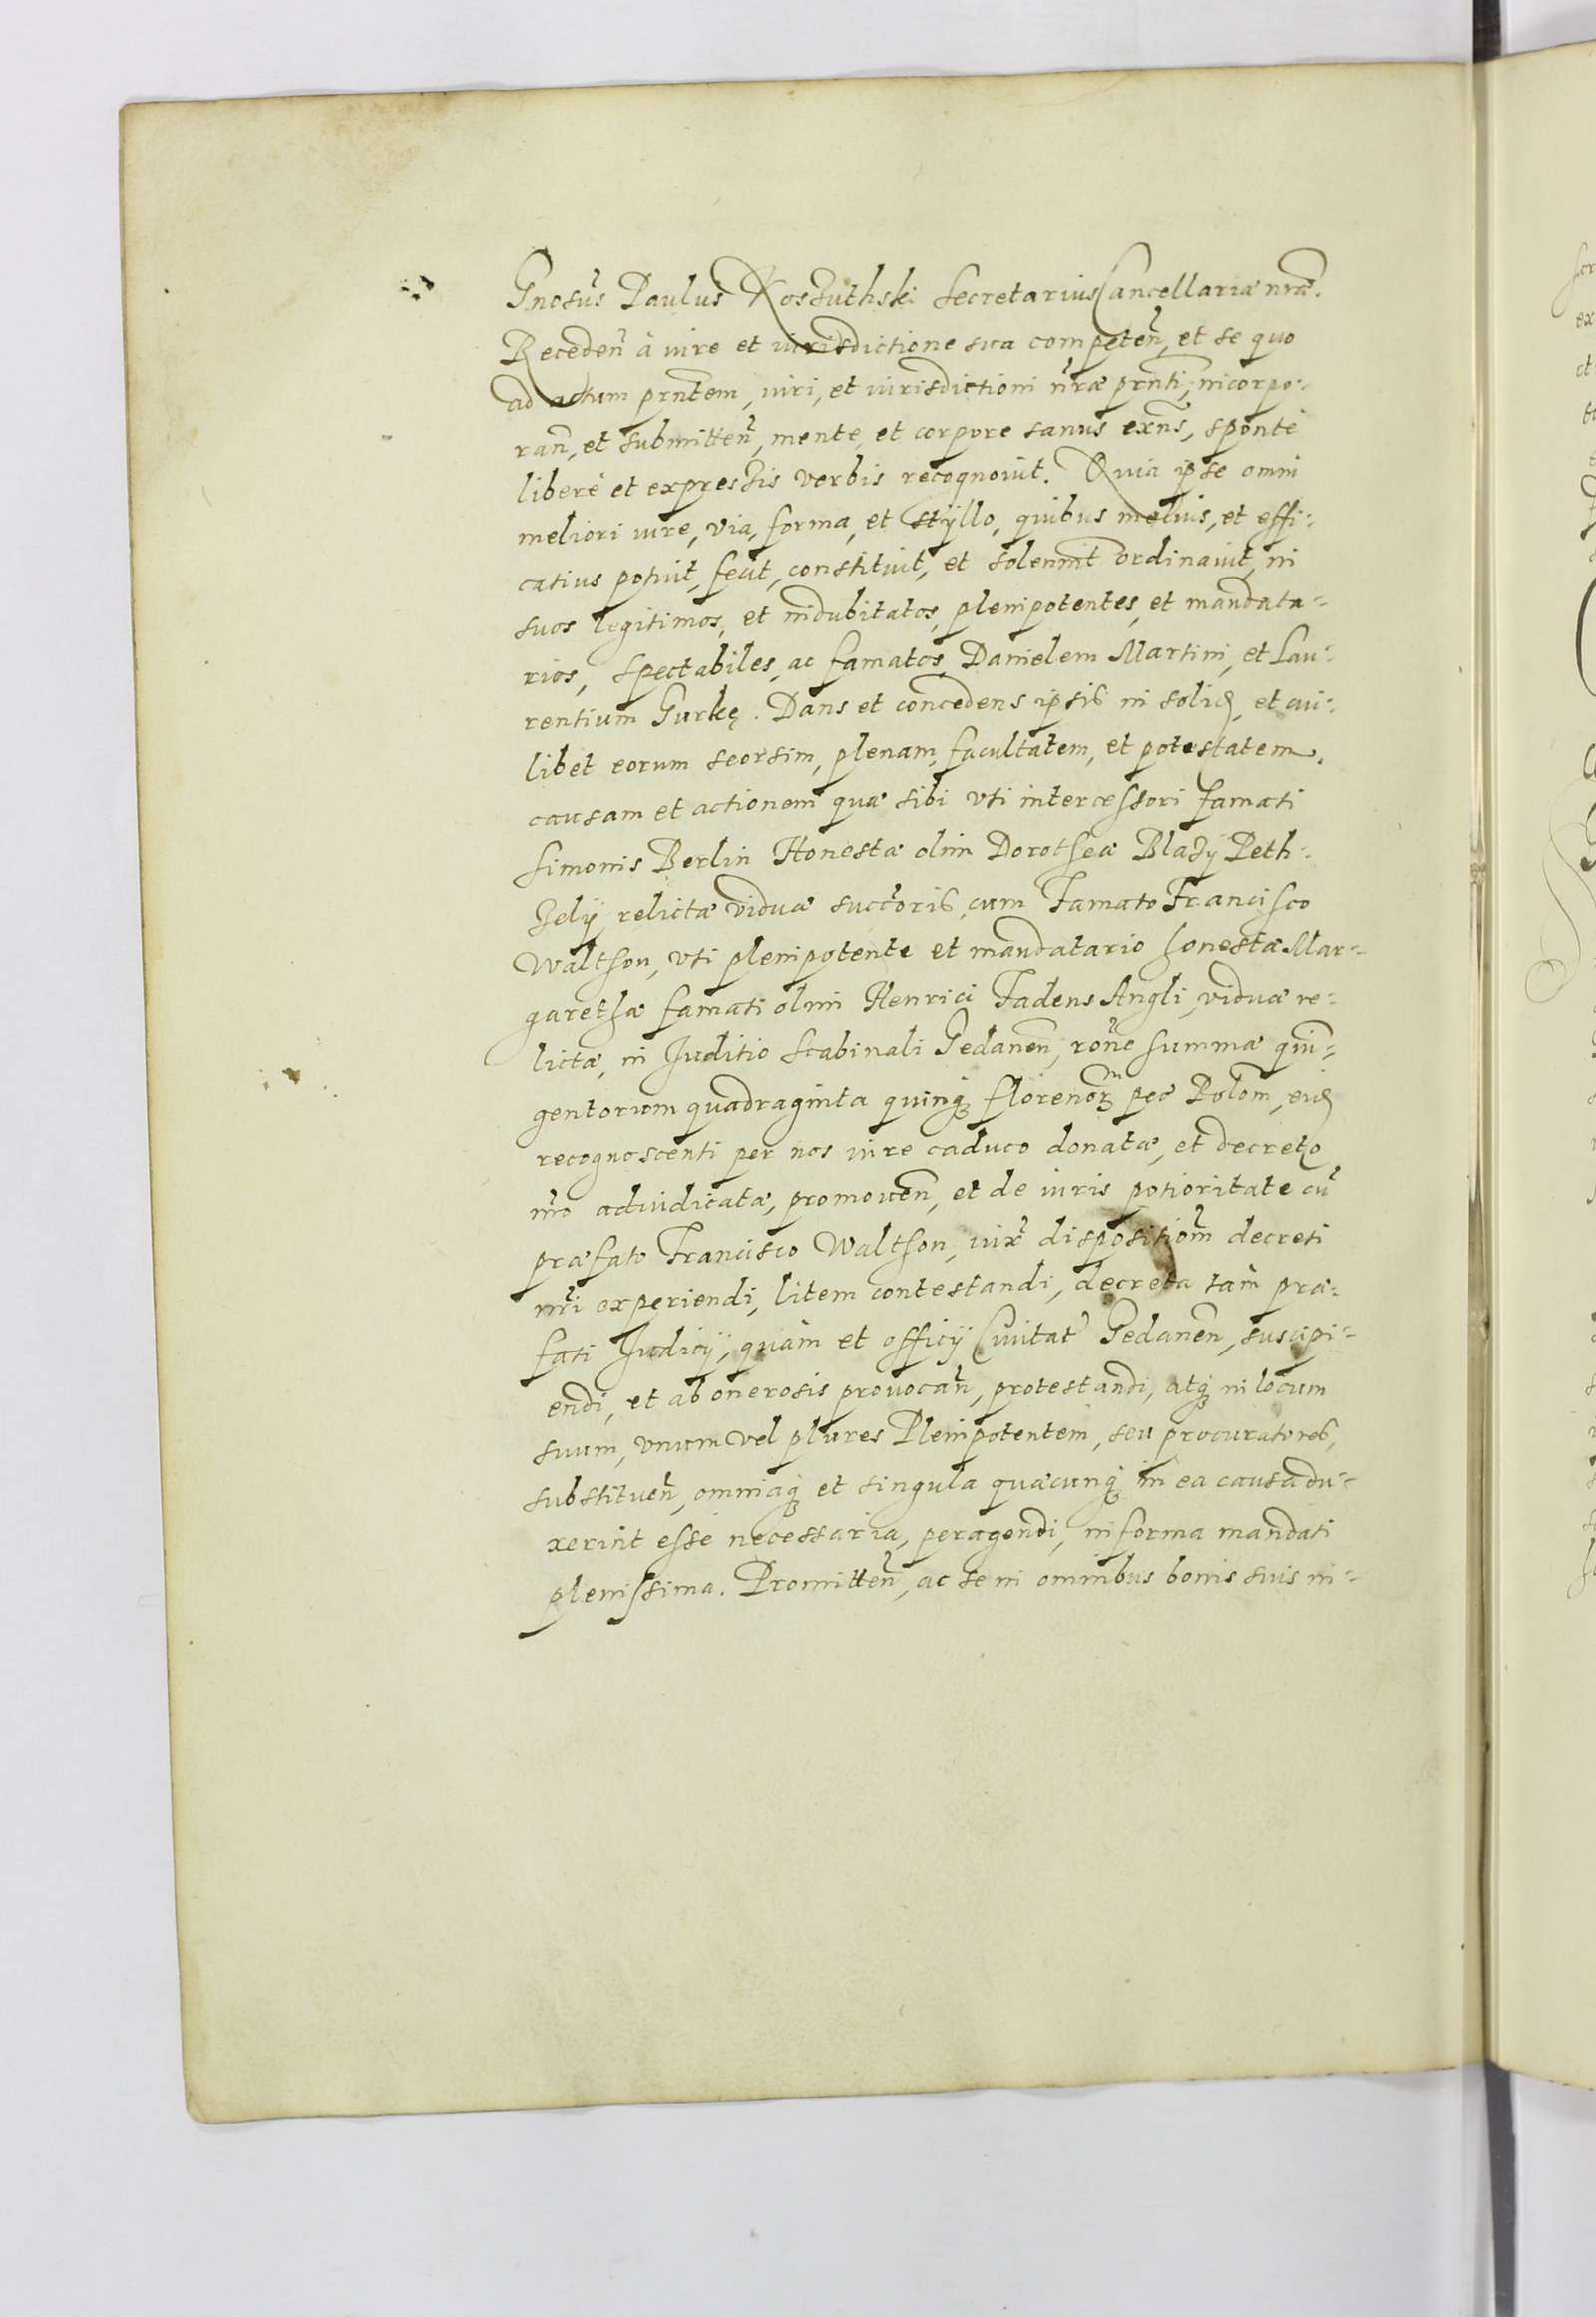 Gnosus Paulus Koszuthski Secretarius Cancellariæ nrae.
Receden̄ à iure et iurisdictione sua competen̄, et se quo
ad actum prntem, iuri, et iurisdictioni nrae prnti, incorpo-
ran̄, et submitten̄, mente, et corpore sanus exns, sponte
libere et expressis verbis recognovit. Quia ipse omni
meliori iure, via, forma, et styllo, quibus melius, et effi-
catius potuit, fecit, constituit, et solennit ordinavit, in
suos legitimos, et indubitatos, plenipotentes, et mandata-
rios, spectabiles, ac famatos, Danielem Martini, et Lau-
rentium Gurkę. Dans et concedens ipsis in solid, et cui-
libet eorum seorsim, plenam, facultatem, et potestatem,
causam et actionem quæ sibi uti intercessori famati
Simonis Berlin Honestæ olim Dorotheæ Blazÿ Peth-
Zelÿ relictæ viduæ succoris, cum Famato Francisco
Waltson, uti plenipotente et mandatario honestæ Mar-
garethæ famati olim Henrici Fadens Angli, viduæ re-
lictæ, in Juditio Scabinali Gedanen̄, rone summæ quin-
gentorum quadraginta quinq florenor pec Polom, eid
recognoscenti per nos iure caduco donatæ, et decreto
nro adiudicatæ, promoven̄, et de iuris potioritate cū
præfato Francisco Waltson, iux dispositiom decreti
nri experiendi, litem contestandi, decreta tam præ-
fati Judicÿ, quàm et officÿ Civitat Gedanen̄, suscipi-
endi, et ab onerosis provocan̄, protestandi, atq in locum
suum, unum vel plures Plenipotentem, seu procuratores,
substituen̄, omniaq et singula quæcunq in ea causa du-
xerint esse necessaria, peragendi, in forma mandati
plenissima. Promitten̄, ac se in omnibus bonis suis in-